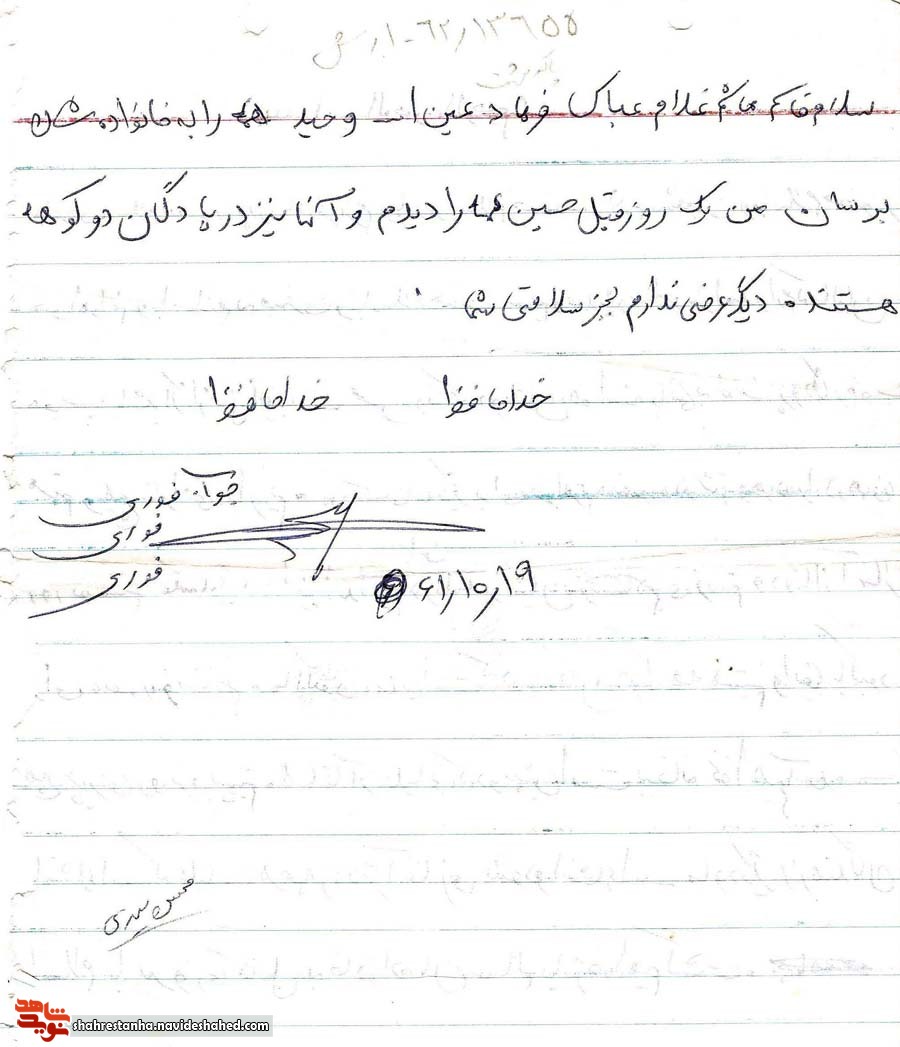 سلام قاسم هاشم غلام عباس فرهاد عین اله وحید همه را به خانواده شان
برسان من یک روز قبل حسین عمه را دیدم و آنها نیز در پادگان دو کوهه
هستند دیگر عرضی ندارم بجز سلامتی شما
خداحافظ خداحافظ
جواب فوری
فوری
فوری
۶۱/۱۰/۱۹
محسن
shahrestanha.navideshahed.com